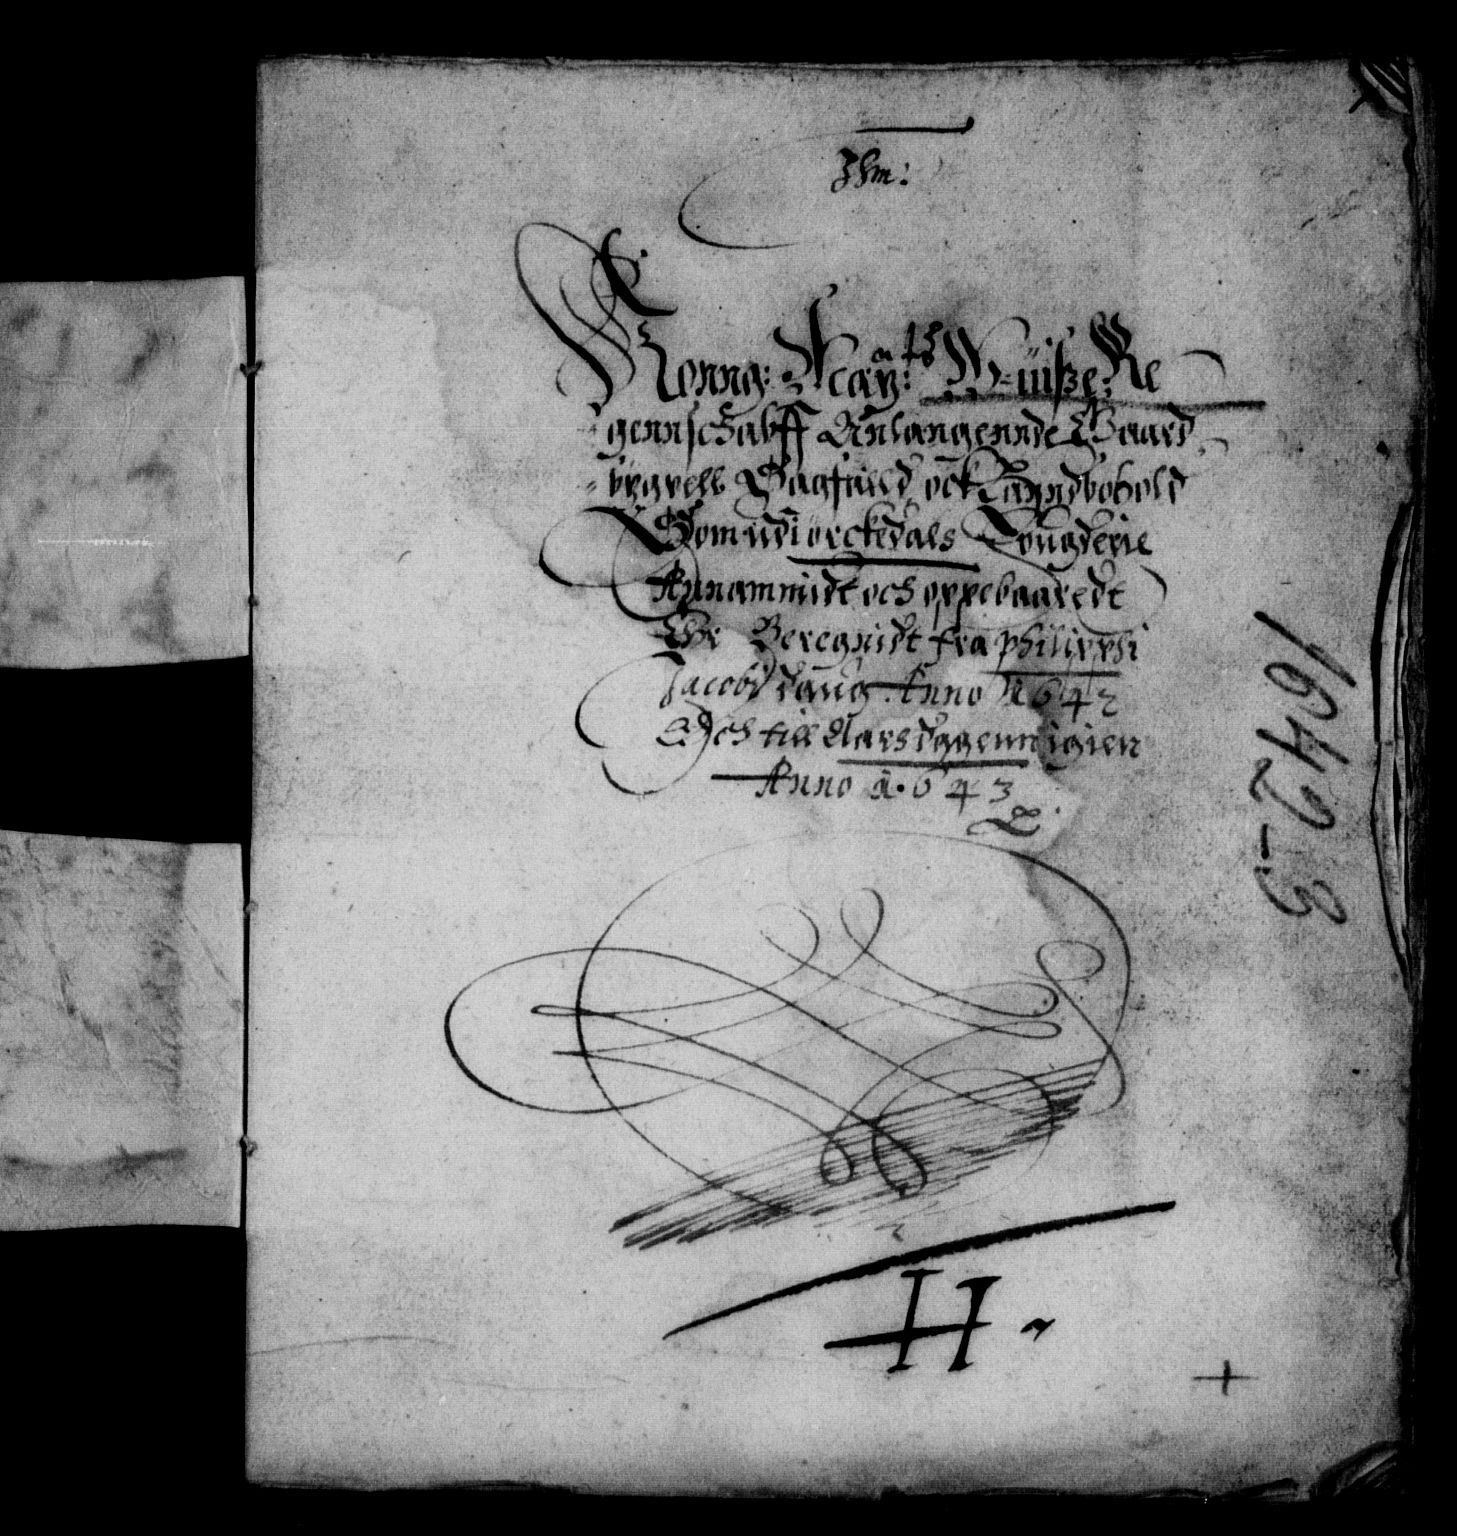 Ihm:
Konng: May:ᵃᵗˢ Wiisze Re
gennschabff Anlangennde Gaard
bygsell Bagfald och Landbohold
Som udi orckedals Fougderie
Annammidt och oppebaaredt
Er Beregnidt fra philippi
Jacobj daug Anno 1642
Och till Aarsdagenn igien
Anno 1.643
H
1642-3